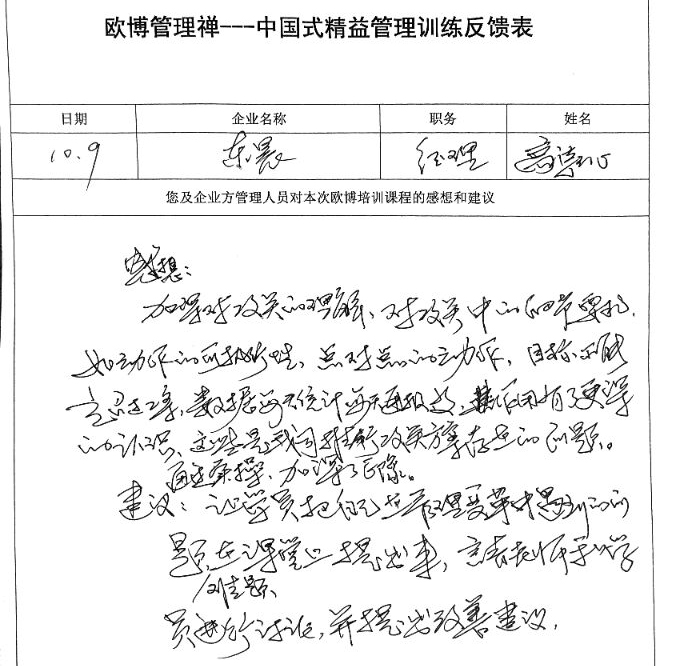 欧博管理禅---中国式精益管理训练反馈表
日期 企业名称 职务 姓名
10.9 东晨 经理 高
您及企业方管理人员对本次欧博培训课程的感想和建议
感想：
加深对攻关的理解、对攻关中的细节要求，
如动作的可执行性，点对点的动作，目标不能
数据每天统计每天 作用有了更深
的认识、这些是我们推行攻关方案存在的问题。
通过实操，加深了印象。
建议：让学员把自己在管理变革中遇到的问
题，在课堂上提出来，老师和学
员进行讨论，并提出改善建议.